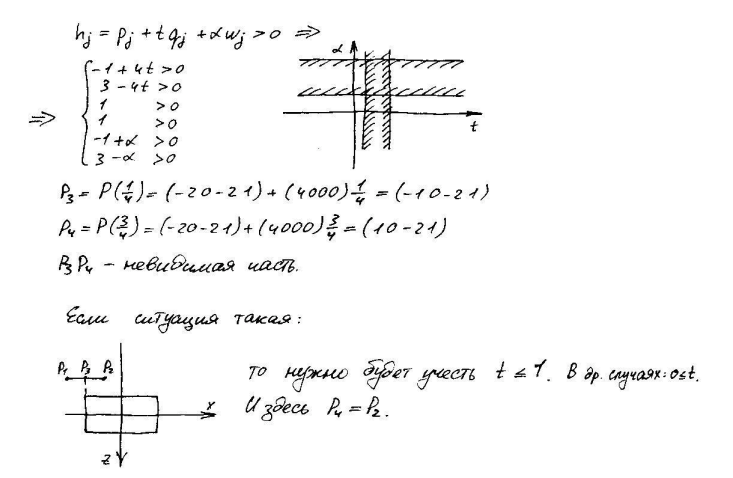 hj = pj + t qj + α wj > 0 ⇒
⇒ { -1 + 4t > 0
3 - 4t > 0
1 > 0
1 > 0
-1 + α > 0
3 - α > 0
α
t
P₃ = P(1/4) = (-2 0 -2 1) + (4 0 0 0) 1/4 = (-1 0 -2 1)
P₄ = P(3/4) = (-2 0 -2 1) + (4 0 0 0) 3/4 = (1 0 -2 1)
P₃P₄ - невидимая часть.
Если ситуация такая:
P₁ P₃ P₂
x
z
то нужно будет учесть t ≤ 1. В др. случаях: 0≤t.
И здесь P₄ = P₂.